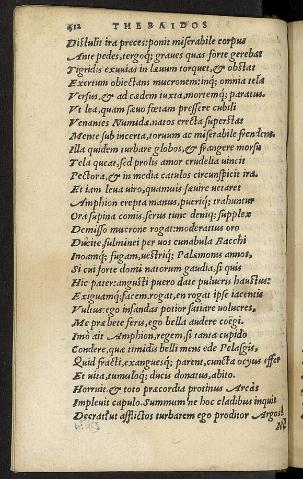 412 THEBAIDOS
Distulit ira preces: ponit miserabile corpus
Ante pedes, tergoq; graues quas forte gerebat
Tigridis exuuias in læuum torquet, & obstat
Exertum obiectans mucronem: inq; omnia tela
Versus, & ad cædem iuxta, mortemq; paratus.
Vt lea, quam sæuo fœtam pressere cubili
Venantes Numidæ, natos erecta superstat
Mente sub incerta, toruum ac miserabile frendens,
Illa quidem turbare globos, & frangere morsu
Tela queat, sed prolis amor crudelia uincit
Pectora, & in media catulos circunspicit ira.
Et iam leua uiro, quamuis sæuire uetaret
Amphion erepta manus, pueriq; trahuntur
Ora supina comis, serus tunc deniq; supplex
Demisso mucrone rogat: moderatius oro
Ducite, fulminei per uos cunabula Bacchi
Inoamq; fugam, uestriq; Palæmonis annos,
Si cui forte domi natorum gaudia, si quis
Hic pater: angusti puero date pulueris haustus:
Exiguamq; facem, rogat, en rogat ipse iacentis
Vultus: ego infandas potior satiare uolucres,
Me præbete feris, ego bella audere coegi.
Imò ait Amphion, regem, si tanta cupido
Condere, quæ timidis belli mens ede Pelasgis,
Quid fracti, exanguesq; parent, cuncta ocyus effer
Et uita, tumuloq; ducis donatus, abito.
Horruit, & toto præcordia protinus Arcas
Impleuit capulo. Summum ne hoc cladibus inquit
Deerat? ut afflictos turbarem ego proditor Argos?